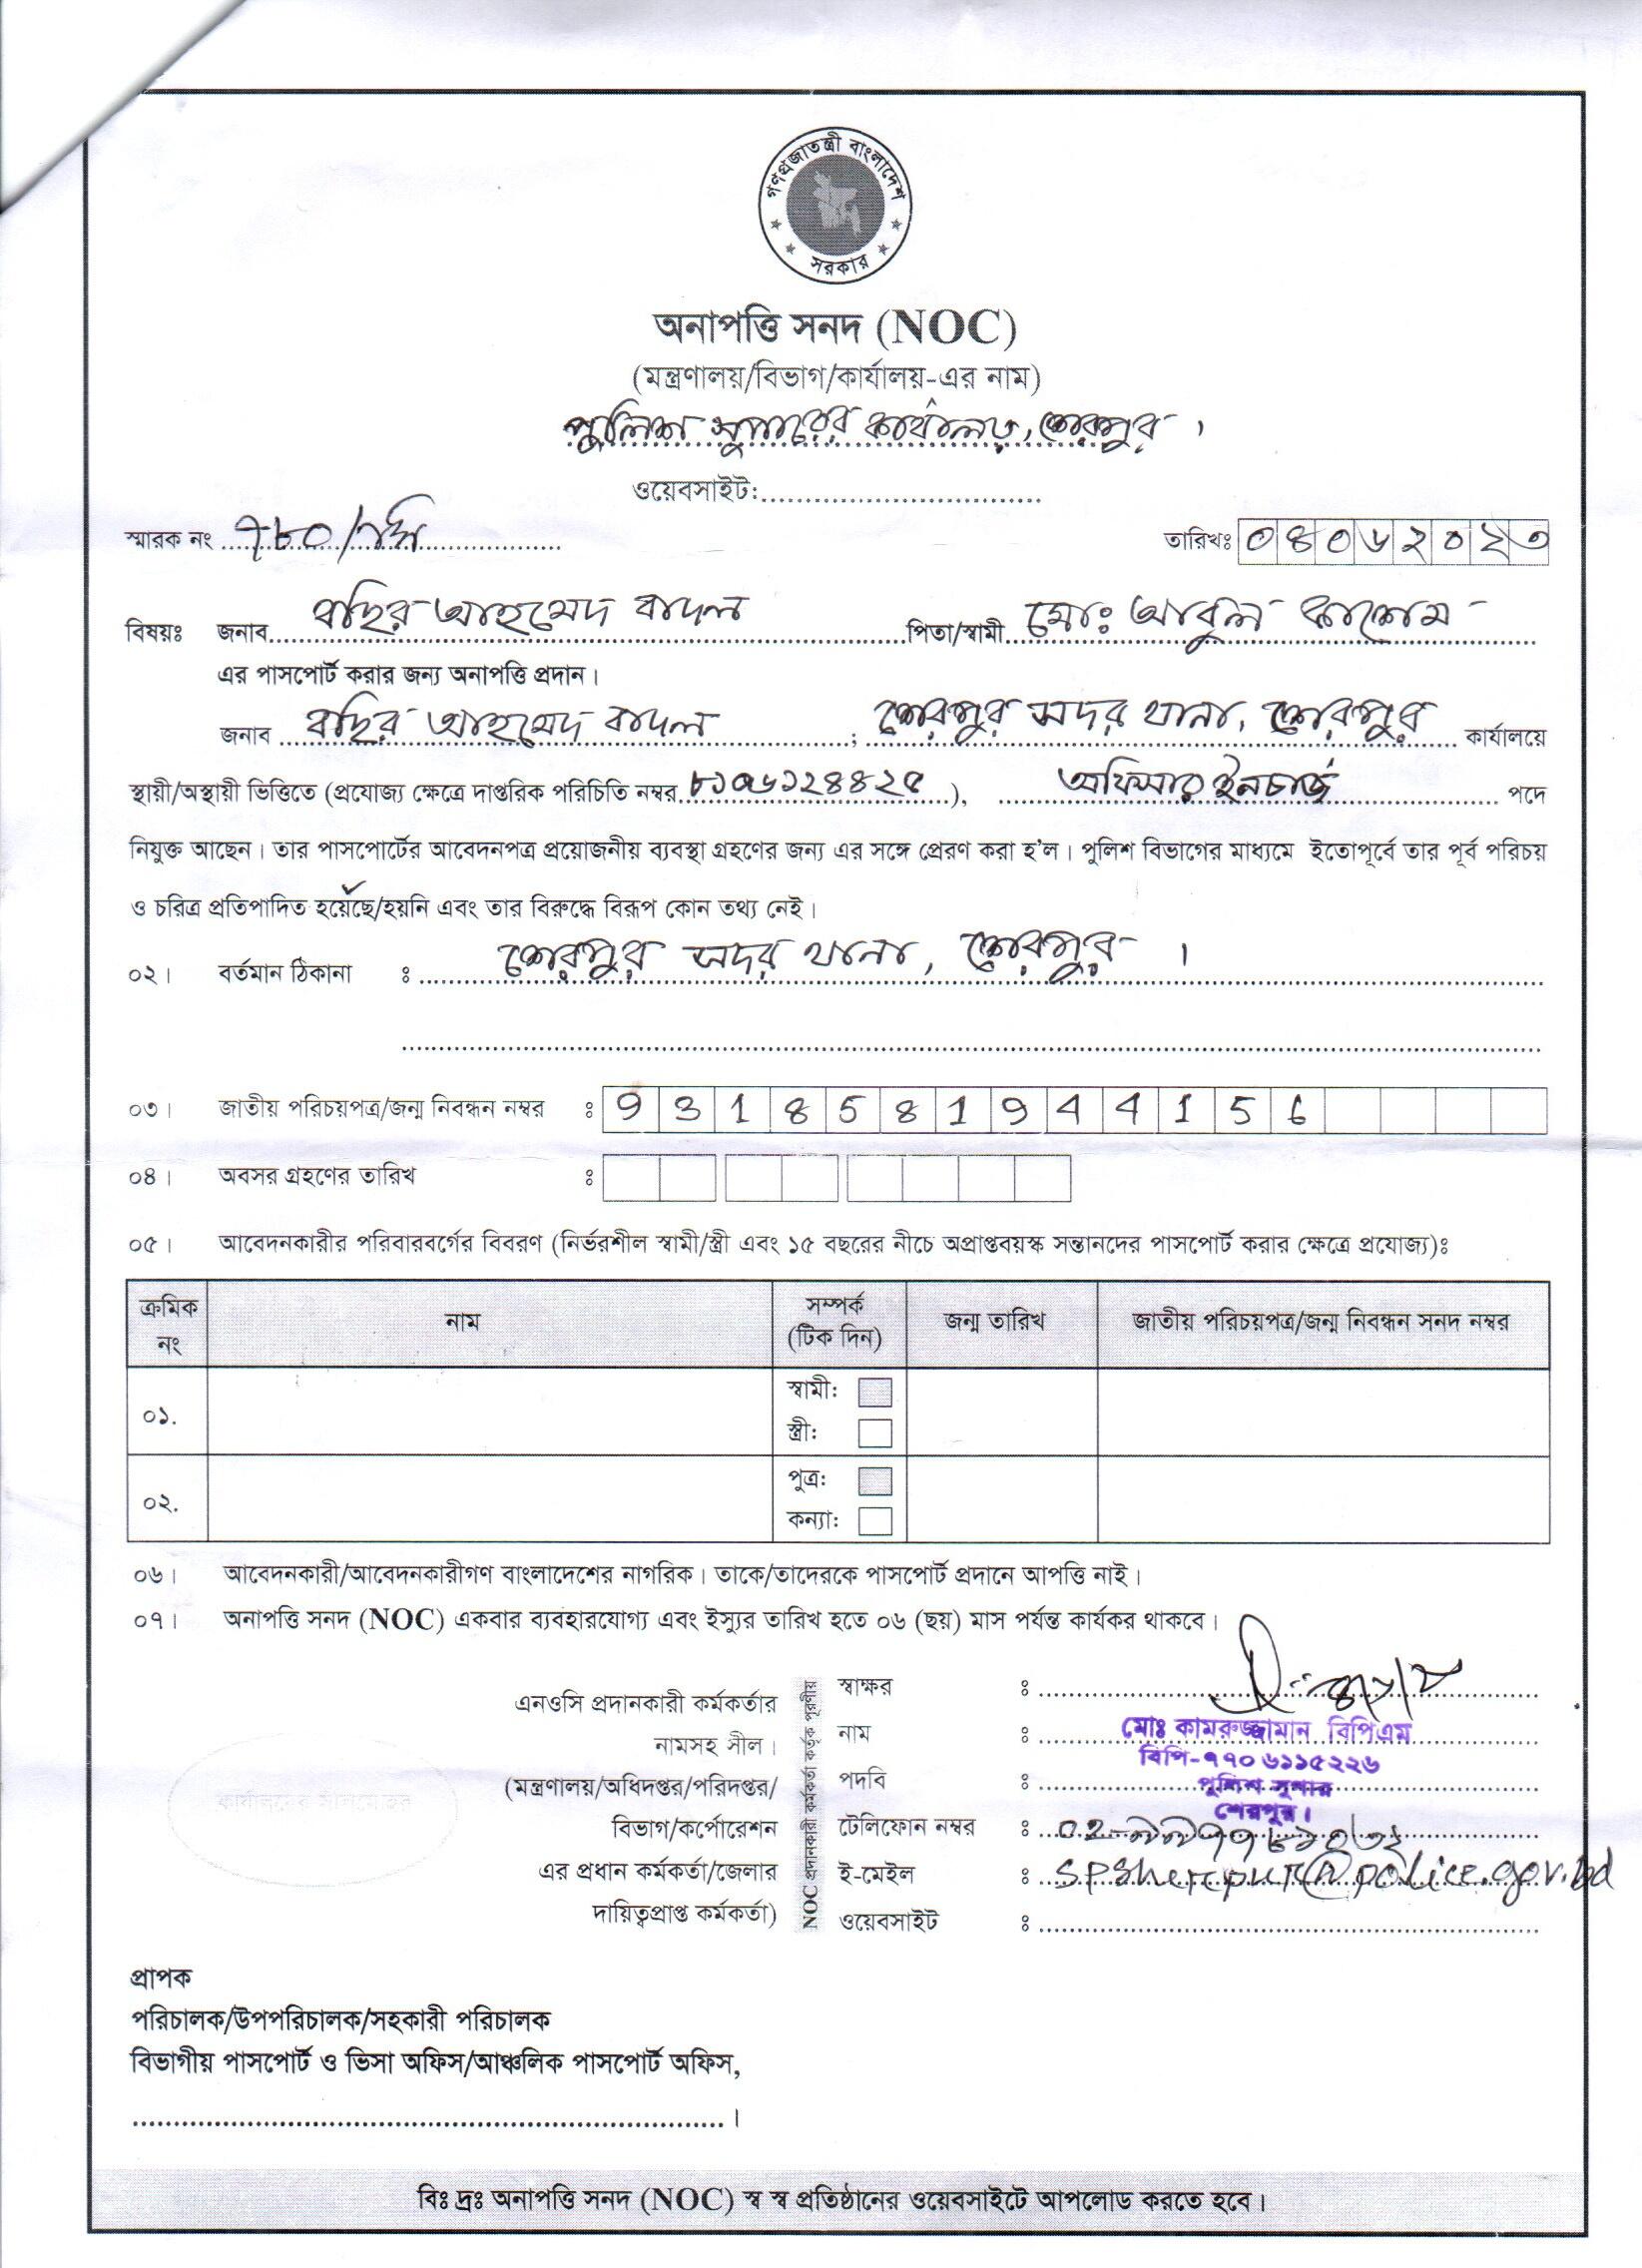 গণপ্রজাতন্ত্রী বাংলাদেশ
সরকার
অনাপত্তি সনদ (NOC)
(মন্ত্রণালয়/বিভাগ/কার্যালয়-এর নাম)
পুলিশ সুপারের কার্যালয়, শেরপুর ।
ওয়েবসাইট:
স্মারক নং ৭৮০/ তারিখঃ ০৪০৬২০২৩
বিষয়ঃ জনাব বছির আহমেদ বাদল পিতা/স্বামী মোঃ আবুল কাশেম
এর পাসপোর্ট করার জন্য অনাপত্তি প্রদান।
জনাব বছির আহমেদ বাদল ; শেরপুর সদর থানা, শেরপুর কার্যালয়ে
স্থায়ী/অস্থায়ী ভিত্তিতে (প্রযোজ্য ক্ষেত্রে দাপ্তরিক পরিচিতি নম্বর ), অফিসার ইনচার্জ পদে
নিযুক্ত আছেন। তার পাসপোর্টের আবেদনপত্র প্রয়োজনীয় ব্যবস্থা গ্রহণের জন্য এর সঙ্গে প্রেরণ করা হ'ল। পুলিশ বিভাগের মাধ্যমে ইতোপূর্বে তার পূর্ব পরিচয়
ও চরিত্র প্রতিপাদিত হয়েছে/হয়নি এবং তার বিরুদ্ধে বিরূপ কোন তথ্য নেই।
০২। বর্তমান ঠিকানা ঃ শেরপুর সদর থানা, শেরপুর ।
০৩। জাতীয় পরিচয়পত্র/জন্ম নিবন্ধন নম্বর ঃ 9318581944156
০৪। অবসর গ্রহণের তারিখ ঃ
০৫। আবেদনকারীর পরিবারবর্গের বিবরণ (নির্ভরশীল স্বামী/স্ত্রী এবং ১৫ বছরের নীচে অপ্রাপ্তবয়স্ক সন্তানদের পাসপোর্ট করার ক্ষেত্রে প্রযোজ্য)ঃ
ক্রমিক নং নাম সম্পর্ক (টিক দিন) জন্ম তারিখ জাতীয় পরিচয়পত্র/জন্ম নিবন্ধন সনদ নম্বর
০১. স্বামী:
স্ত্রী:
০২. পুত্র:
কন্যা:
০৬। আবেদনকারী/আবেদনকারীগণ বাংলাদেশের নাগরিক। তাকে/তাদেরকে পাসপোর্ট প্রদানে আপত্তি নাই।
০৭। অনাপত্তি সনদ (NOC) একবার ব্যবহারযোগ্য এবং ইস্যুর তারিখ হতে ০৬ (ছয়) মাস পর্যন্ত কার্যকর থাকবে।
এনওসি প্রদানকারী কর্মকর্তার
নামসহ সীল।
(মন্ত্রণালয়/অধিদপ্তর/পরিদপ্তর/
বিভাগ/কর্পোরেশন
এর প্রধান কর্মকর্তা/জেলার
দায়িত্বপ্রাপ্ত কর্মকর্তা)
NOC প্রদানকারী কর্মকর্তা কর্তৃক পূরণীয়
স্বাক্ষর ঃ
নাম ঃ মোঃ কামরুজ্জামান বিপিএম
বিপি-৭৭০৬১১৫২২৬
পদবি ঃ পুলিশ সুপার
শেরপুর।
টেলিফোন নম্বর ঃ
ই-মেইল ঃ spsherpur@police.gov.bd
ওয়েবসাইট ঃ
প্রাপক
পরিচালক/উপপরিচালক/সহকারী পরিচালক
বিভাগীয় পাসপোর্ট ও ভিসা অফিস/আঞ্চলিক পাসপোর্ট অফিস,
।
বিঃ দ্রঃ অনাপত্তি সনদ (NOC) স্ব স্ব প্রতিষ্ঠানের ওয়েবসাইটে আপলোড করতে হবে।